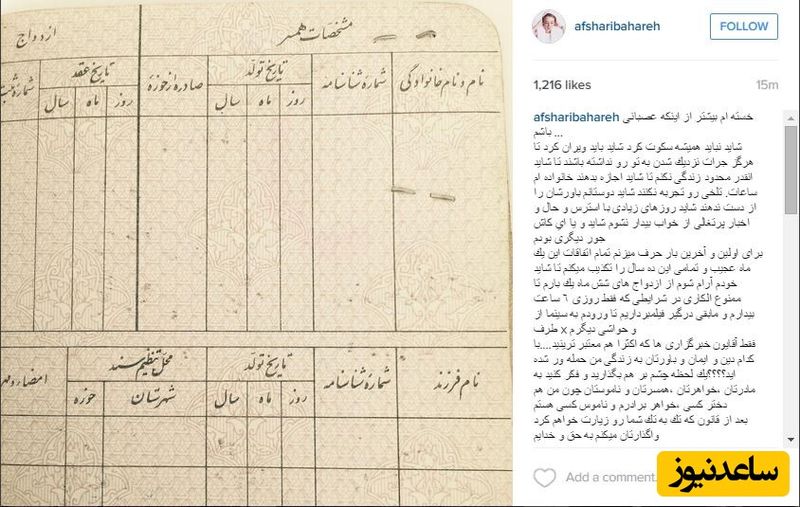 ازدواج
مشخصات همسر
نام و نام خانوادگی
شمارهٔ شناسنامه
تاریخ تولد
روز
ماه
سال
صادره از حوزهٔ
تاریخ عقد
روز
ماه
سال
نام فرزند
شمارهٔ شناسنامه
تاریخ تولد
روز
ماه
سال
محل تنظیم سند
شهرستان
حوزه
afsharibahareh
FOLLOW
1,216 likes
15m
afsharibahareh خسته ام بیشتر از اینکه عصبانی
باشم ...
شاید نباید همیشه سکوت کرد شاید باید ویران کرد تا
هرگز جرات نزدیك شدن به تو رو نداشته باشند تا شاید
انقدر محدود زندگی نکنم تا شاید اجازه بدهند خانواده ام
ساعات. تلخی رو تجربه نکنند شاید دوستانم باورشان را
از دست ندهند شاید روزهای زیادی با استرس و حال و
اخبار پرتغالی از خواب بیدار نشوم شاید و یا اي کاش
جور دیگری بودم
برای اولین و آخرین بار حرف میزنم تمام اتفاقات این یك
ماه عجیب و تمامی این ده سال را تکذیب میکنم تا شاید
خودم آرام شوم از ازدواج های شش ماه یك بارم تا
ممنوع الکاری در شرایطی که فقط روزی ٦ ساعت
بیدارم و مابقی درگیر فیلمبرداریم تا ورودم به سینما از
طرف x و حواشی دیگرم
فقط آقایون خبرگزاری ها که اکثرا هم معتبر ترینید....با
کدام دین و ایمان و باورتان به زندگي من حمله ور شده
اید؟؟؟؟یك لحظه چشم بر هم بگذارید و فکر کنید به
مادرتان ،خواهرتان ،همسرتان و ناموستان چون من هم
دختر کسی ،خواهر برادرم و ناموس کسی هستم
بعد از قانون که تك به تك شما رو زیارت خواهم کرد
واگذارتان میکنم به حق و خدایم
Add a comment.
ساعدنیوز